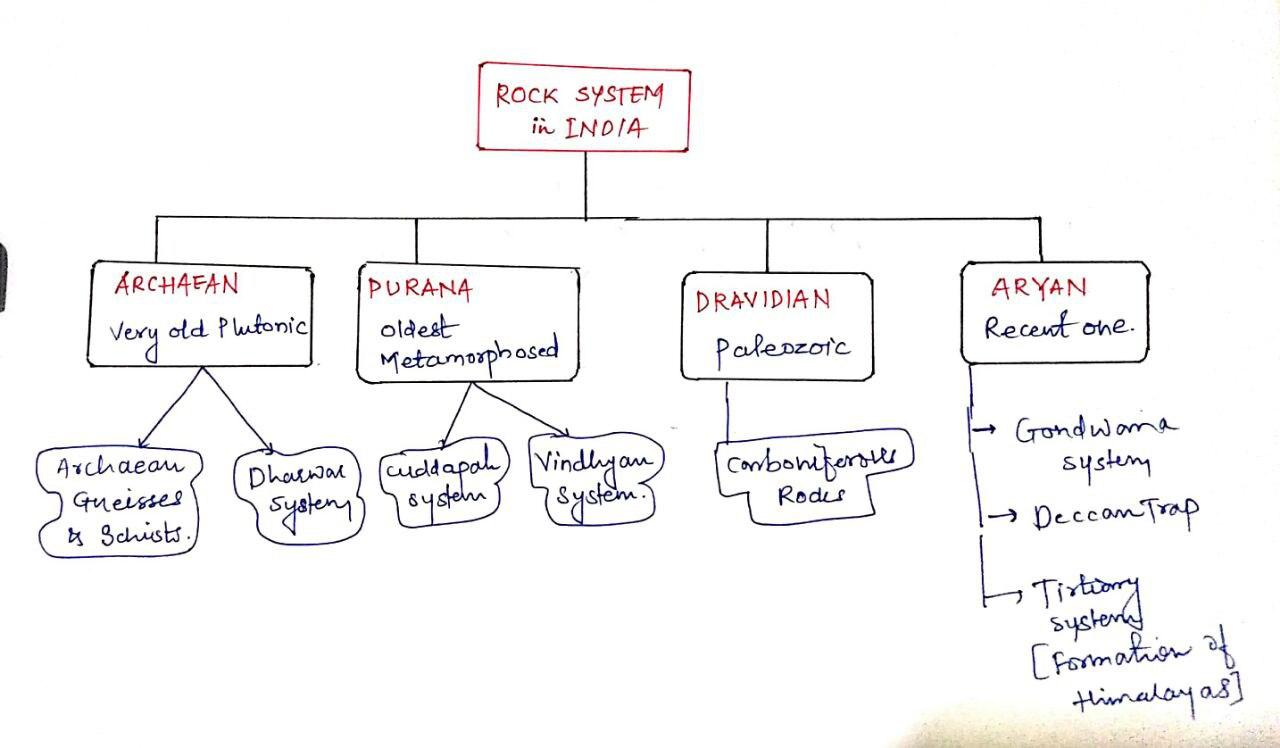 ROCK SYSTEM
in INDIA
ARCHAEAN
Very old Plutonic
PURANA
Oldest
Metamorphosed
DRAVIDIAN
Paleozoic
ARYAN
Recent one.
Archaean
Gneisses
& Schists.
Dharwar
System
Cuddapah
System
Vindhyan
System.
Carboniferous
Rocks
Gondwana
system
Deccan Trap
Tirtiary
system
[Formation of
Himalayas]